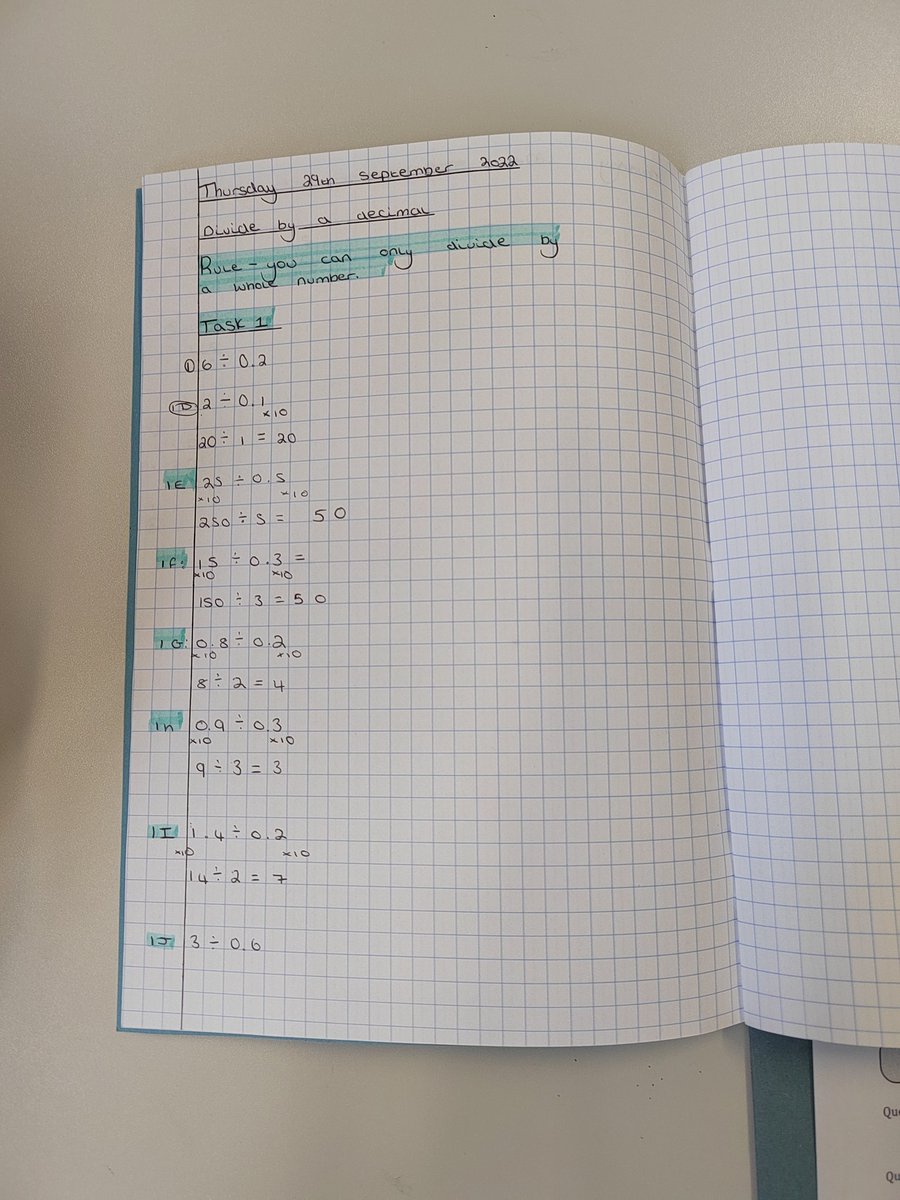 Thursday 29th september 2022
Divide by a decimal
Rule - you can only divide by
a whole number.
Task 1
① 6 ÷ 0.2
1D 2 ÷ 0.1
×10
20 ÷ 1 = 20
1E 25 ÷ 0.5
×10 ×10
250 ÷ 5 = 50
1f: 15 ÷ 0.3 =
×10 ×10
150 ÷ 3 = 50
1G: 0.8 ÷ 0.2
×10 ×10
8 ÷ 2 = 4
1h 0.9 ÷ 0.3
×10 ×10
9 ÷ 3 = 3
1I 1.4 ÷ 0.2
×10 ×10
14 ÷ 2 = 7
1J 3 ÷ 0.6
Que
Qu